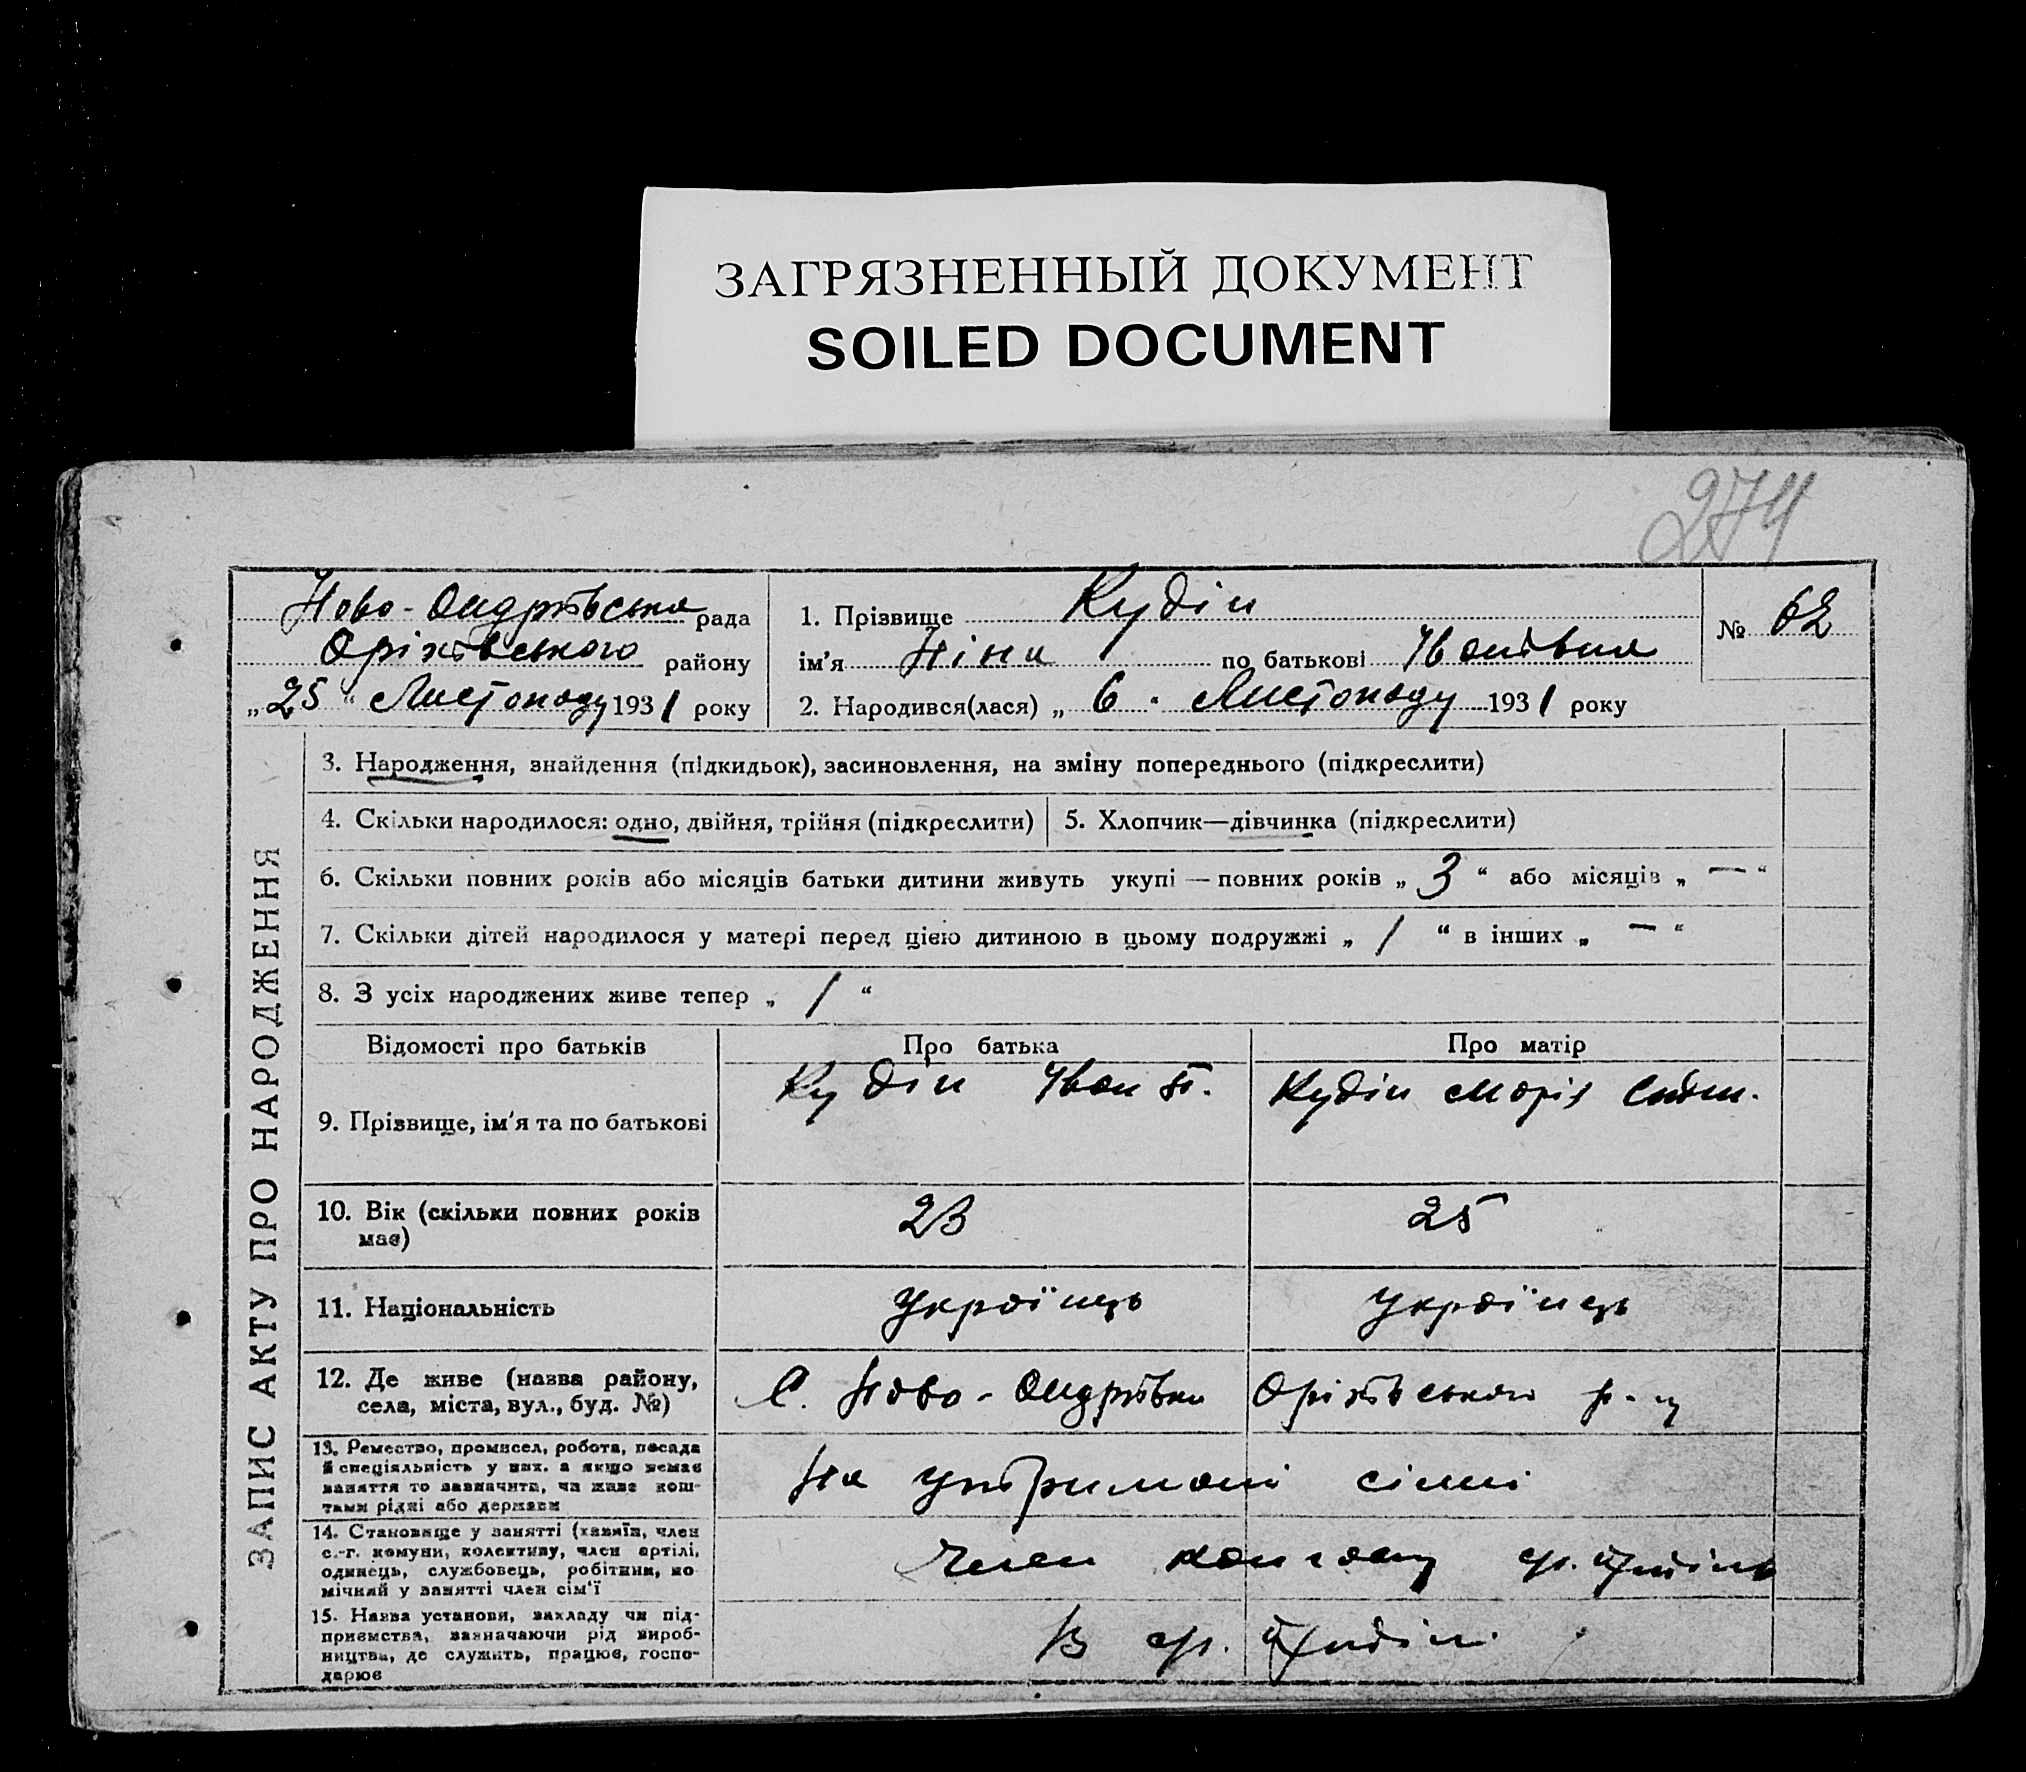 ЗАГРЯЗНЕННЫЙ ДОКУМЕНТ
SOILED DOCUMENT
274
Ново-Андріївська рада
Оріхівського району
„25“ Листопаду 1931 року
1. Прізвище Кудін
ім'я Ніна по батькові Іванівна
2. Народився(лася) „6" Листопаду 1931 року
№ 62
ЗАПИС АКТУ ПРО НАРОДЖЕННЯ
3. Народження, знайдення (підкидьок), засиновлення, на зміну попереднього (підкреслити)
4. Скільки народилося: одно, двійня, трійня (підкреслити)
5. Хлопчик—дівчинка (підкреслити)
6. Скільки повних років або місяців батьки дитини живуть укупі — повних років „3“ або місяців „—“
7. Скільки дітей народилося у матері перед цією дитиною в цьому подружжі „1“ в інших „—“
8. З усіх народжених живе тепер „1“
Відомості про батьків
Про батька
Про матір
9. Прізвище, ім'я та по батькові
Кудін Іван
Кудін Марія
10. Вік (скільки повних років
має)
23
25
11. Національність
Українець
Українець
12. Де живе (назва району,
села, міста, вул., буд. №)
С. Ново-Андрівка Оріхівського р-ну
13. Ремество, промисел, робота, посада
й спеціяльність у них. а якщо немає
заняття то зазначити, чи живе кош-
тами рідні або держави
На утримані сімї
14. Становище у занятті (хазяїн, член
с.-г. комуни, колективу, член артілі,
одинець, службовець, робітник, по
мічний у занятті член сім'ї
Член
15. Назва установи, закладу чи під-
приємства, зазначаючи рід вироб-
ництва, де служить, працює, госпо-
дарює
В